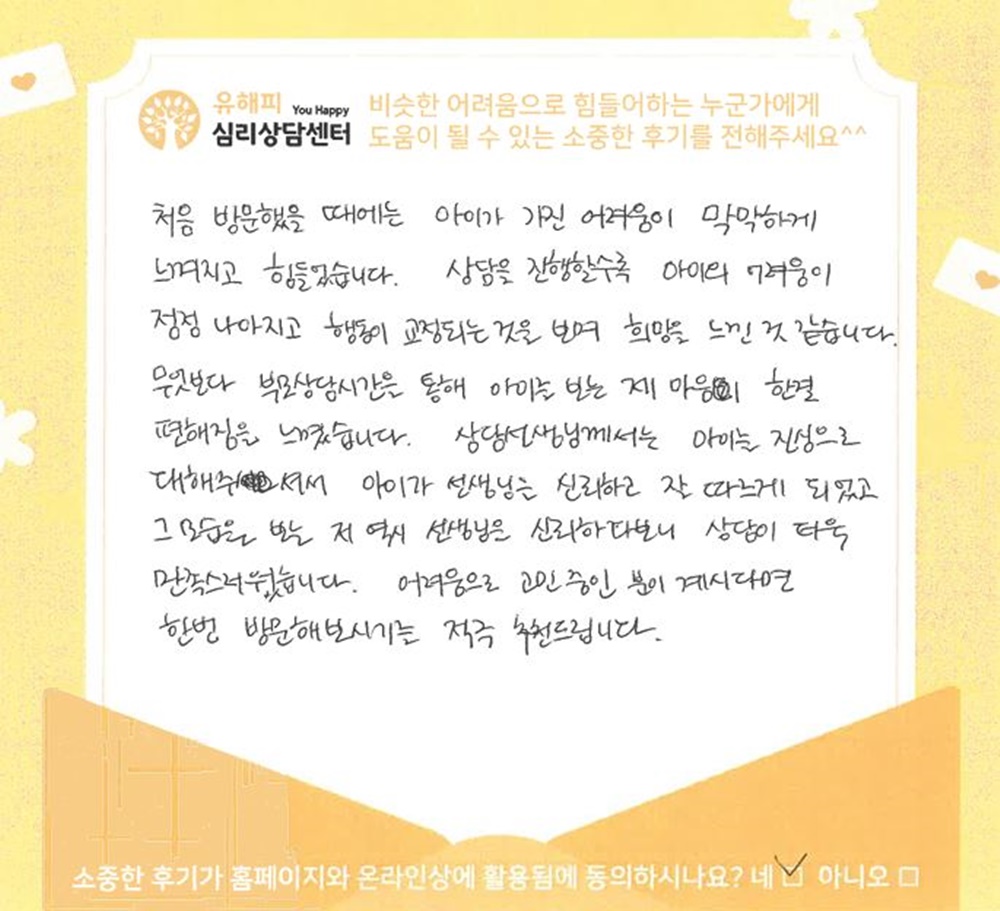 유해피 You Happy
심리상담센터
비슷한 어려움으로 힘들어하는 누군가에게
도움이 될 수 있는 소중한 후기를 전해주세요^^
처음 방문했을 때에는 아이가 가진 어려움이 막막하게
느껴지고 힘들었습니다. 상담을 진행할수록 아이의 어려움이
점점 나아지고 행동이 교정되는 것을 보며 희망을 느낀 것 같습니다.
무엇보다 부모상담시간을 통해 아이를 보는 제 마음이 한결
편해짐을 느꼈습니다. 상담선생님께서는 아이를 진심으로
대해주셔서 아이가 선생님을 신뢰하고 잘 따르게 되었고
그 모습을 보는 저 역시 선생님을 신뢰하다보니 상담이 더욱
만족스러웠습니다. 어려움으로 고민 중인 분이 계시다면
한번 방문해보시기를 적극 추천드립니다.
소중한 후기가 홈페이지와 온라인상에 활용됨에 동의하시나요? 네 아니오